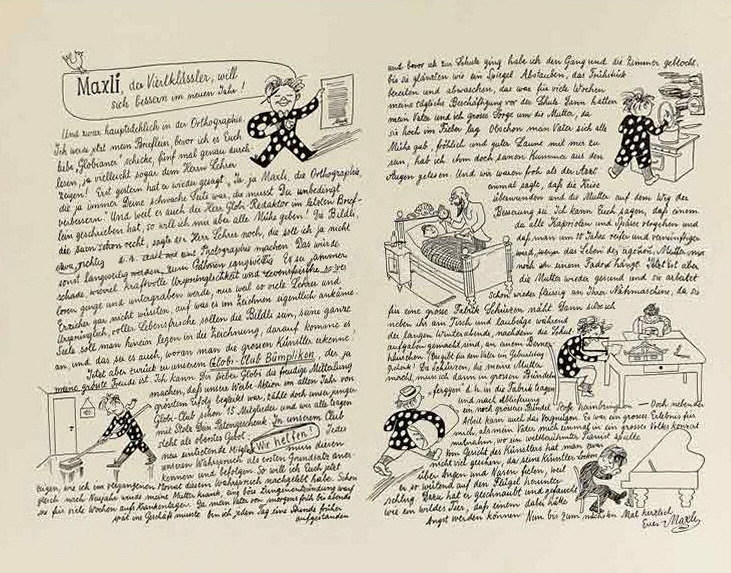 Maxli, der Viertklässler, will
sich bessern im neuen Jahr!
Und zwar hauptsächlich in der Orthographie.
Ich werde jetzt mein Brieflein, bevor ich es Euch
liebe „Globianer" schicke, fünf mal genau durch-
lesen, ja vielleicht sogar dem Herrn Lehrer
zeigen! Erst gestern hat er wieder gesagt, Ja, ja Maxli, die Orthographie,
die ja immer Deine schwache Seite war, die musst Du unbedingt
verbessern! Und weil es auch der Herr Globi-Redaktor im letzten Brief-
lein geschrieben hat, so will ich mir aber alle Mühe geben! Die Bildli,
die seien schon recht, sagte der Herr Lehrer noch, die soll ich ja nicht
etwa „richtig" eine Photographie machen. Das würde
sonst langweilig werden, zum Gähnen langweilig. Es sei jammer-
schade wieviel kraftvolle Ursprünglichkeit und
loren ginge und untergraben werde, nur weil so viele Lehrer und
Erzieher gar nicht wüssten, auf was es im Zeichnen eigentlich ankäme.
Ursprünglich, voller Lebensfrische sollen die Bildli sein, seine ganze
Seele soll man hinein legen in die Zeichnung, darauf komme es
an, und das sei es auch, woran man die grossen Künstler erkenne!
Jetzt aber zurück zu unserem Globi-Club Bümpliken, der ja
meine grösste Freude ist. Ich kann Dir lieber Globi die freudige Mitteilung
machen, dass unsere Werbe-Aktion im alten Jahr von
grösstem Erfolg begleitet war, zählte doch unser junger
Globi-Club schon 15 Mitglieder und wir alle tragen
mit Stolz Dein Patengeschenk. In unserem Club
steht als oberstes Gebot: Wir helfen! Jedes
neu eintretende Mitglied muss diesen
unseren Wahrspruch als ersten Grundsatz aner-
kennen und befolgen. So will ich Euch jetzt
zeigen, wie ich im vergangenen Monat diesem Wahrspruch nachgelebt habe. Schon
gleich nach Neujahr wurde meine Mutter krank, eine böse Lungenentzündung warf
sie für viele Wochen aufs Krankenlager. Da mein Vater von morgens früh bis abends
spät im Geschäft musste bin ich jeden Tag eine Stunde früher
aufgestanden
und bevor ich zur Schule ging habe ich den Gang und die Zimmer geblocht,
bis sie glänzten wie ein Spiegel. Abstauben, das Frühstück
bereiten und abwaschen, das war für viele Wochen
meine tägliche Beschäftigung vor der Schule. Dann hatten
mein Vater und ich grosse Sorge um die Mutter, da
sie hoch im Fieber lag. Obschon mein Vater sich alle
Mühe gab, fröhlich und guter Laune mit mir zu
sein, hab ich ihm doch seinen Kummer aus den
Augen gelesen. Und wir waren froh als der Arzt
einmal sagte, dass die Krise
überwunden und die Mutter auf dem Weg der
Besserung sei. Ich kann Euch sagen, dass einem
da alle Kapriolen und Spässe vergehen und
dass man um 10 Jahre reifer und vernünftiger
wird, wenn das Leben der eigenen Mutter nur
noch an einem Faden hängt. Jetzt ist aber
die Mutter wieder gesund und sie arbeitet
schon wieder fleissig an Ihrer Nähmaschine, da sie
für eine grosse Fabrik Schürzen näht. Dann sitze ich
neben ihr am Tisch und laubsäge während
der langen Winterabende, nachdem die Schul-
aufgaben gemacht sind, an einem Berner
Häuschen
Die Schürzen, die meine Mutter
macht, muss ich dann in grossen Bündeln
„fergggen" d. h. in die Fabrik tragen
und nach Ablieferung
ein noch grösseres Bündel Stoffe heimbringen — Doch neben der
Arbeit kam auch das Vergnügen. Es war ein grosses Erlebnis für
mich, als mein Vater mich einmal in ein grosses Volks konzert
mitnahm, wo ein weltberühmter Pianist spielte.
Vom Gesicht des Künstlers hat man zwar
nicht viel gesehen, da seine Künstler Locken
über Augen und Nase fielen, weil
er so wütend auf den Flügel herunter
schlug. Dazu hat er geschnaubt und gefaucht
wie ein wildes Tier, dass einem dabei hätte
Angst werden können. Nun bis zum nächsten Mal herzlich
Euer Maxli